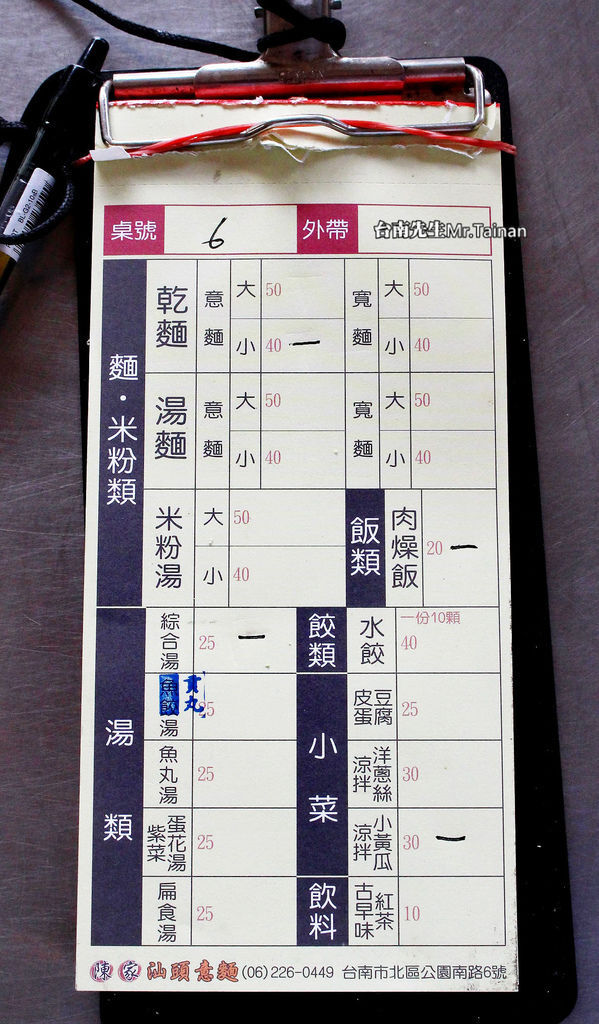 BL-G2-10-B
桌號 6 外帶
台南先生Mr.Tainan
麵・米粉類
乾麵 意麵 大 50 寬麵 大 50
小 40 一 小 40
湯麵 意麵 大 50 寬麵 大 50
小 40 小 40
米粉湯 大 50 飯類 肉燥飯 20 一
小 40
湯類
綜合湯 25 一 餃類 水餃 一份10顆 40
魚餃湯 貢丸 25 小菜 皮蛋豆腐 25
魚丸湯 25 涼拌洋蔥絲 30
紫菜蛋花湯 25 涼拌小黃瓜 30 一
扁食湯 25 飲料 古早味紅茶 10
陳家 汕頭意麵 (06)226-0449 台南市北區公園南路6號